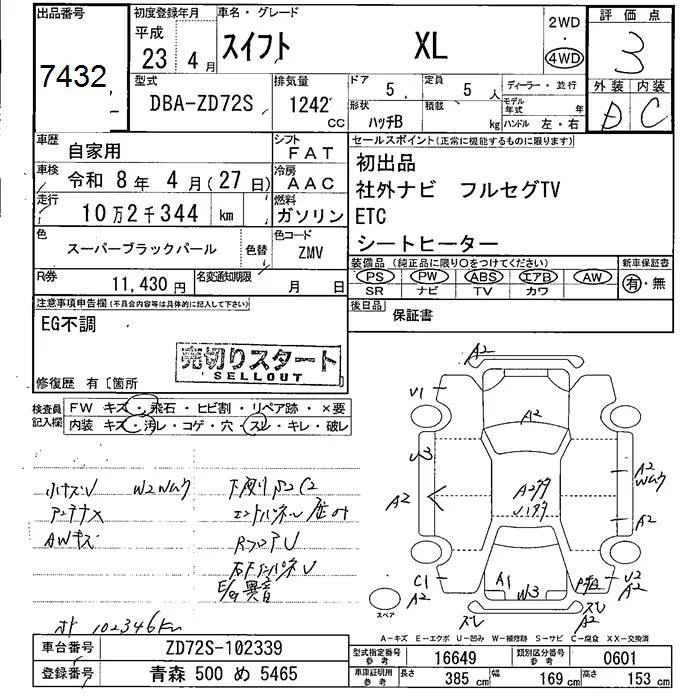 出品番号
7432
初度登録年月
平成
23年4月
車名・グレード
スイフト XL
2WD
・
4WD
評価点
3
外装 内装
D C
型式
DBA-ZD72S
排気量
1242
CC
ドア
5
定員
5人
形状
ハッチB
積載
kg
ディーラー・並行
モデル年式 年
ハンドル 左・右
車歴
自家用
シフト
FAT
車検
令和 8年 4月(27日)
冷房
AAC
走行
10万2千344 km
燃料
ガソリン
色
スーパーブラックパール
色替
色コード
ZMV
R券
11,430円
名変通知期限
月 日
セールスポイント(正常に機能するものに限ります)
初出品
社外ナビ フルセグTV
ETC
シートヒーター
装備品(純正品に限り○をつけてください)
新車保証書
PS PW ABS エアB AW
SR ナビ TV カワ
有・無
後日品
保証書
注意事項申告欄(不具合内容等は具体的に記入して下さい)
EG不調
売切りスタート
SELLOUT
修復歴 有〔箇所
検査員
記入欄
FW キズ・飛石・ヒビ割・リペア跡・×要
内装 キズ・汚レ・コゲ・穴・スレ・キレ・破レ
小キズU W2Wムラ
アンテナX
AWキズ
下廻りS2C2
RフロアU
E/g異音
オド 102346km
A2
V1
A2
U3
A2
A2
Wムラ
A2
C1
A2
A1
W3
U2
A2
スレ
スレ
A2
スペア
A-キズ E-エクボ U-凹み W-補修跡 S-サビ C-腐食 XX-交換済
車台番号
ZD72S-102339
登録番号
青森 500 め 5465
型式指定番号
参考
16649
類別区分番号
参考
0601
車庫証明用
参考
長さ
385 cm
幅
169 cm
高さ
153 cm